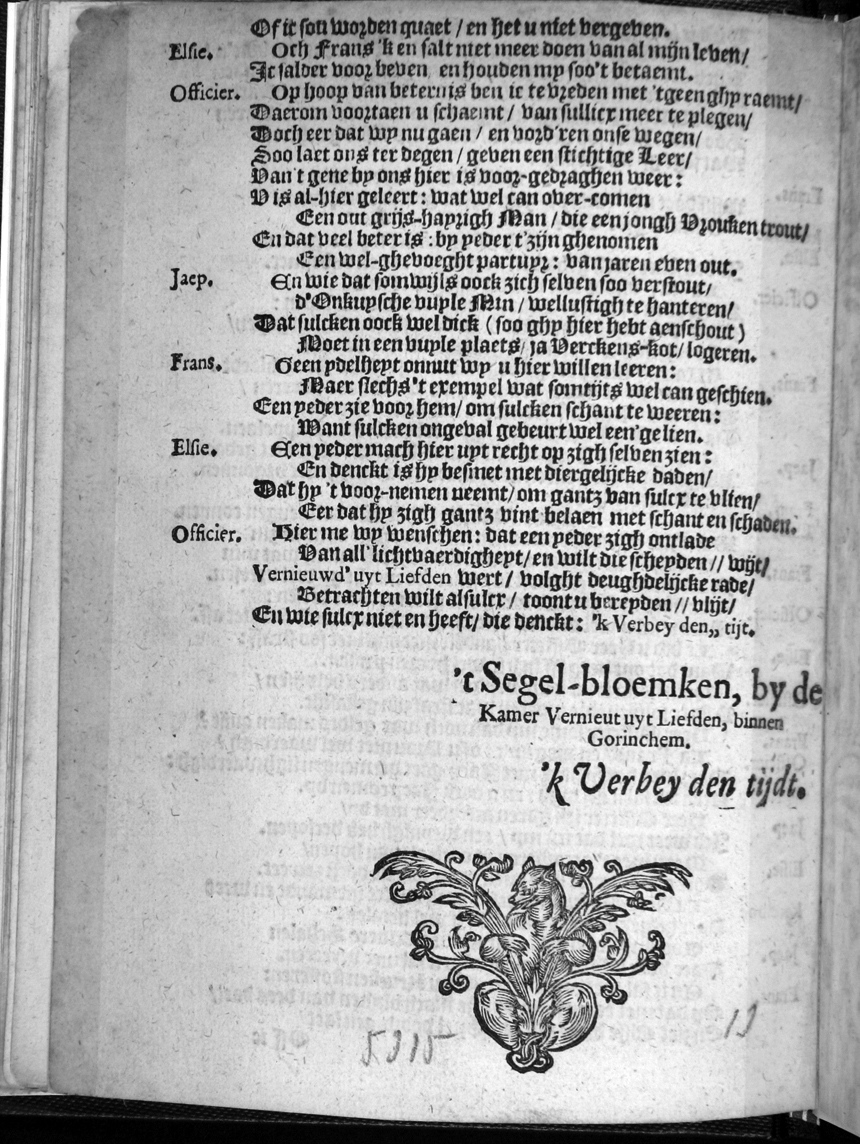 Of ic sou worden quaet / en het u niet vergeven.
Elsie. Och Frans 'k en salt niet meer doen van al mijn leven /
Ic salder voor beven en houden my soo't betaemt.
Officier. Op hoop van beternis ben ic te vreden met 'tgeen ghy raemt /
Daerom voortaen u schaemt / van sullicx meer te plegen /
Doch eer dat wy nu gaen / en vord'ren onse wegen /
Soo laet ons ter degen / geven een stichtige Leer /
Van't gene by ons hier is voor-gedraghen weer:
V is al-hier geleert: wat wel can over-comen
Een out grijs-hayrigh Man / die een jongh Vrouken trout /
En dat veel beter is: by yeder t'zijn ghenomen
Een wel-ghevoeght partuyr: van jaren even out.
Jaep. En wie dat somwijls oock zich selven soo verstout /
d'Onkuysche vuyle Min / wellustigh te hanteren /
Dat sulcken oock wel dick (soo ghy hier hebt aenschout)
Moet in een vuyle plaets / ja Verckens-kot / logeren.
Frans. Geen ydelheyt onnut wy u hier willen leeren:
Maer slechs 't exempel wat somtijts wel can geschien.
Een yeder zie voor hem / om sulcken schant te weeren:
Want sulcken ongeval gebeurt wel een'ge lien.
Elsie. Een yeder mach hier uyt recht op zigh selven zien:
En denckt is hy besmet met diergelijcke daden /
Dat hy 't voor-nemen neemt / om gantz van sulcx te vlien /
Eer dat hy zigh gantz vint belaen met schant en schaden.
Officier. Hier me wy wenschen: dat een yeder zigh ontlade
Van all' lichtvaerdigheyt / en wilt die scheyden // wijt /
Vernieuwd' uyt Liefden wert / volght deughdelijcke rade /
Betrachten wilt alsulcx / toont u bereyden // vlijt /
En wie sulcx niet en heeft / die denckt: 'k Verbey den„ tijt.
't Segel-bloemken, by de
Kamer Vernieut uyt Liefden, binnen
Gorinchem.
'k Verbey den tijdt.
5315 19